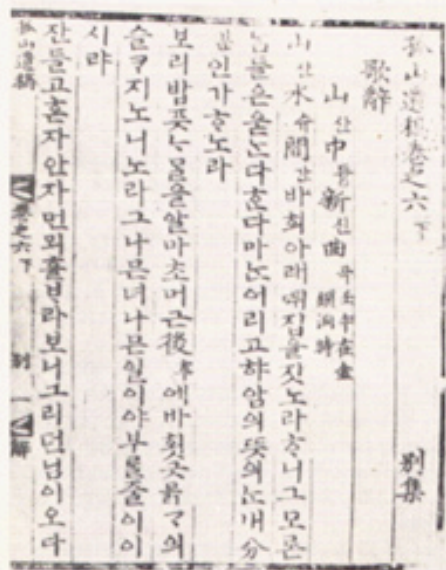 孤山遺稿卷之六 下 別集
歌辭
山산中듕新신曲곡 壬午在金鎖洞時
山산水슈間간바회아래뛰집을짓노라ᄒᆞ니그모론
ᄂᆞᆷ들은욷ᄂᆞᆫ다ᄒᆞᆫ다마ᄂᆞᆫ어리고햐암의뜻의ᄂᆞᆫ내分
분인가ᄒᆞ노라
보리밥픗ᄂᆞ믈을알마초머근後후에바횟긋믉ᄀᆞ의
슬ᄏᆞ지노니노라그나믄녀나믄일이야부ᄅᆞᆯ줄이이
시랴
잔들고혼자안자먼뫼흘ᄇᆞ라보니그리던님이오다
孤山遺稿 卷之六 下 別 一